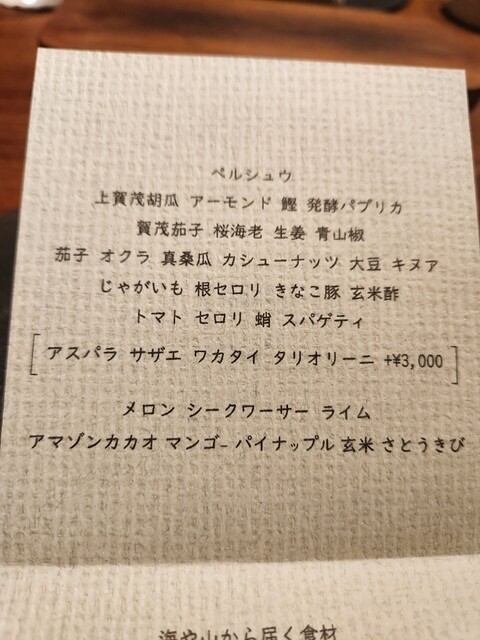 ペルシュウ
上賀茂胡瓜 アーモンド 鰹 発酵パプリカ
賀茂茄子 桜海老 生姜 青山椒
茄子 オクラ 真桑瓜 カシューナッツ 大豆 キヌア
じゃがいも 根セロリ きなこ豚 玄米酢
トマト セロリ 蛸 スパゲティ
[アスパラ サザエ ワカタイ タリオリーニ +¥3,000]
メロン シークワーサー ライム
アマゾンカカオ マンゴー パイナップル 玄米 さとうきび
海や山から届く食材